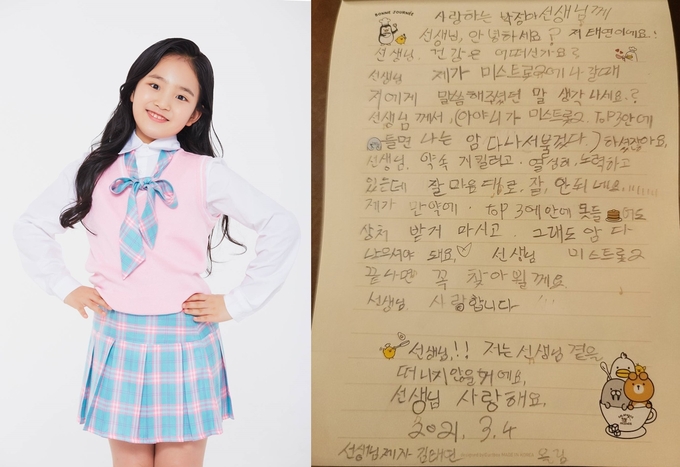 BONNE JOURNÉE
사랑하는 박정아선생님께
선생님, 안녕하세요? 저 태연이에요.!
선생님. 건강은 어떠신가요?
선생님 제가 미스트롯2에 나갈때
저에게 말씀해주셨던 말 생각나세요?
선생님께서, (아야 니가 미스트롯2. TOP3안에
들면 나는 암 다 나서불겄다.) 하셨잖아요,
선생님. 약속 지킬려고. 열심히, 노력하고
있는데 잘 마음대로. 잘, 안되네요,,,,,,,
제가 만약에. TOP 3에 안에 못들어도
상처 받거 마시고. 그래도 암 다
나으셔야 돼요,♡ 선생님 미스트롯2
끝나면 꼭 찾아뵐께요
선생님, 사랑합니다
선생님,!! 저는 선생님 곁을
떠나지않을거에요,
선생님 사랑해요,
2021, 3.4
선생님제자 김태연 올림